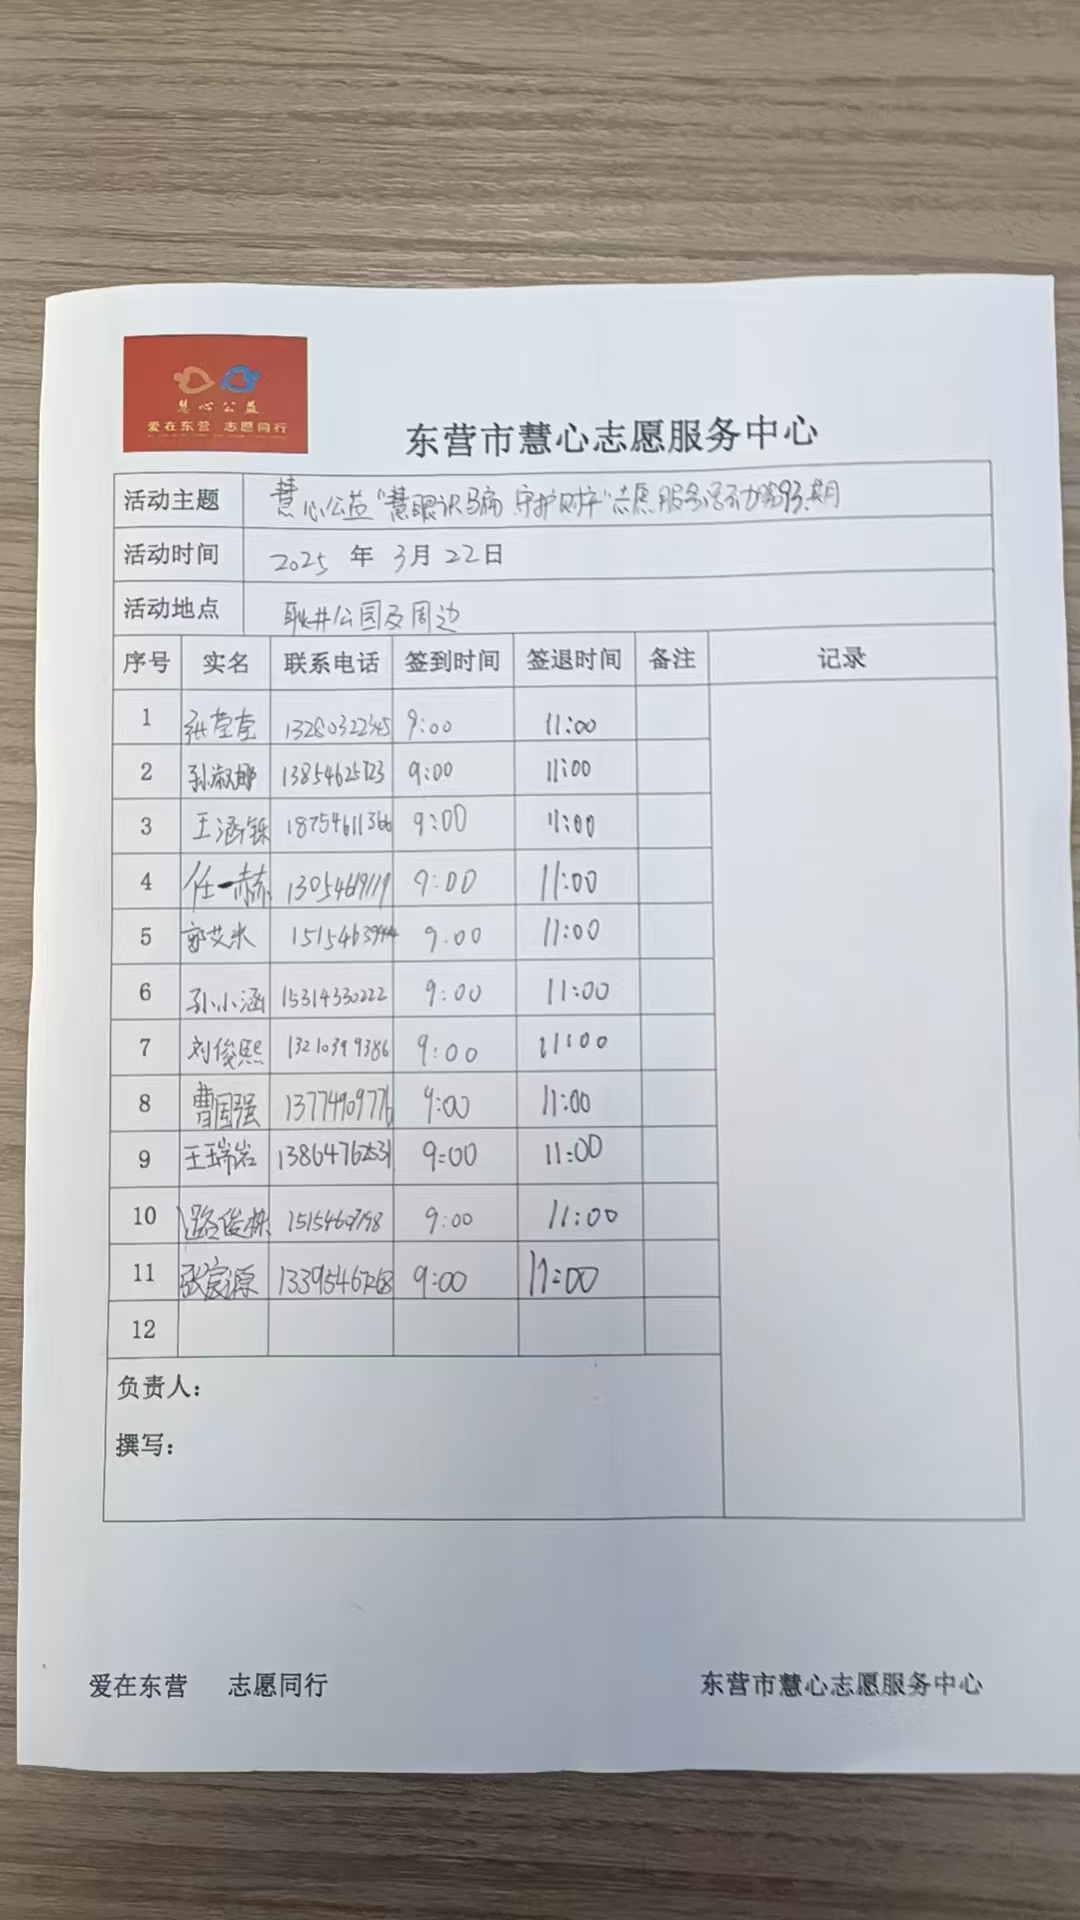 慧心公益
爱在东营 志愿同行
东营市慧心志愿服务中心
活动主题 慧心公益"慧眼识骗 守护财产"志愿服务活动第93期
活动时间 2025 年 3月 22日
活动地点 耿井公园及周边
序号 实名 联系电话 签到时间 签退时间 备注 记录
1 张莹莹 13280322345 9:00 11:00
2 孙淑娜 9:00 11:00
3 王涵铄 18754611366 9:00 11:00
4 任一赫 9:00 11:00
5 郭艾米 9:00 11:00
6 孙小涵 15314330222 9:00 11:00
7 刘俊熙 13210399386 9:00 11:00
8 曹国强 13774909776 9:00 11:00
9 王瑞岩 13864762531 9:00 11:00
10 路俊 9:00 11:00
11 张宸源 9:00 11:00
12
负责人：
撰写：
爱在东营 志愿同行 东营市慧心志愿服务中心